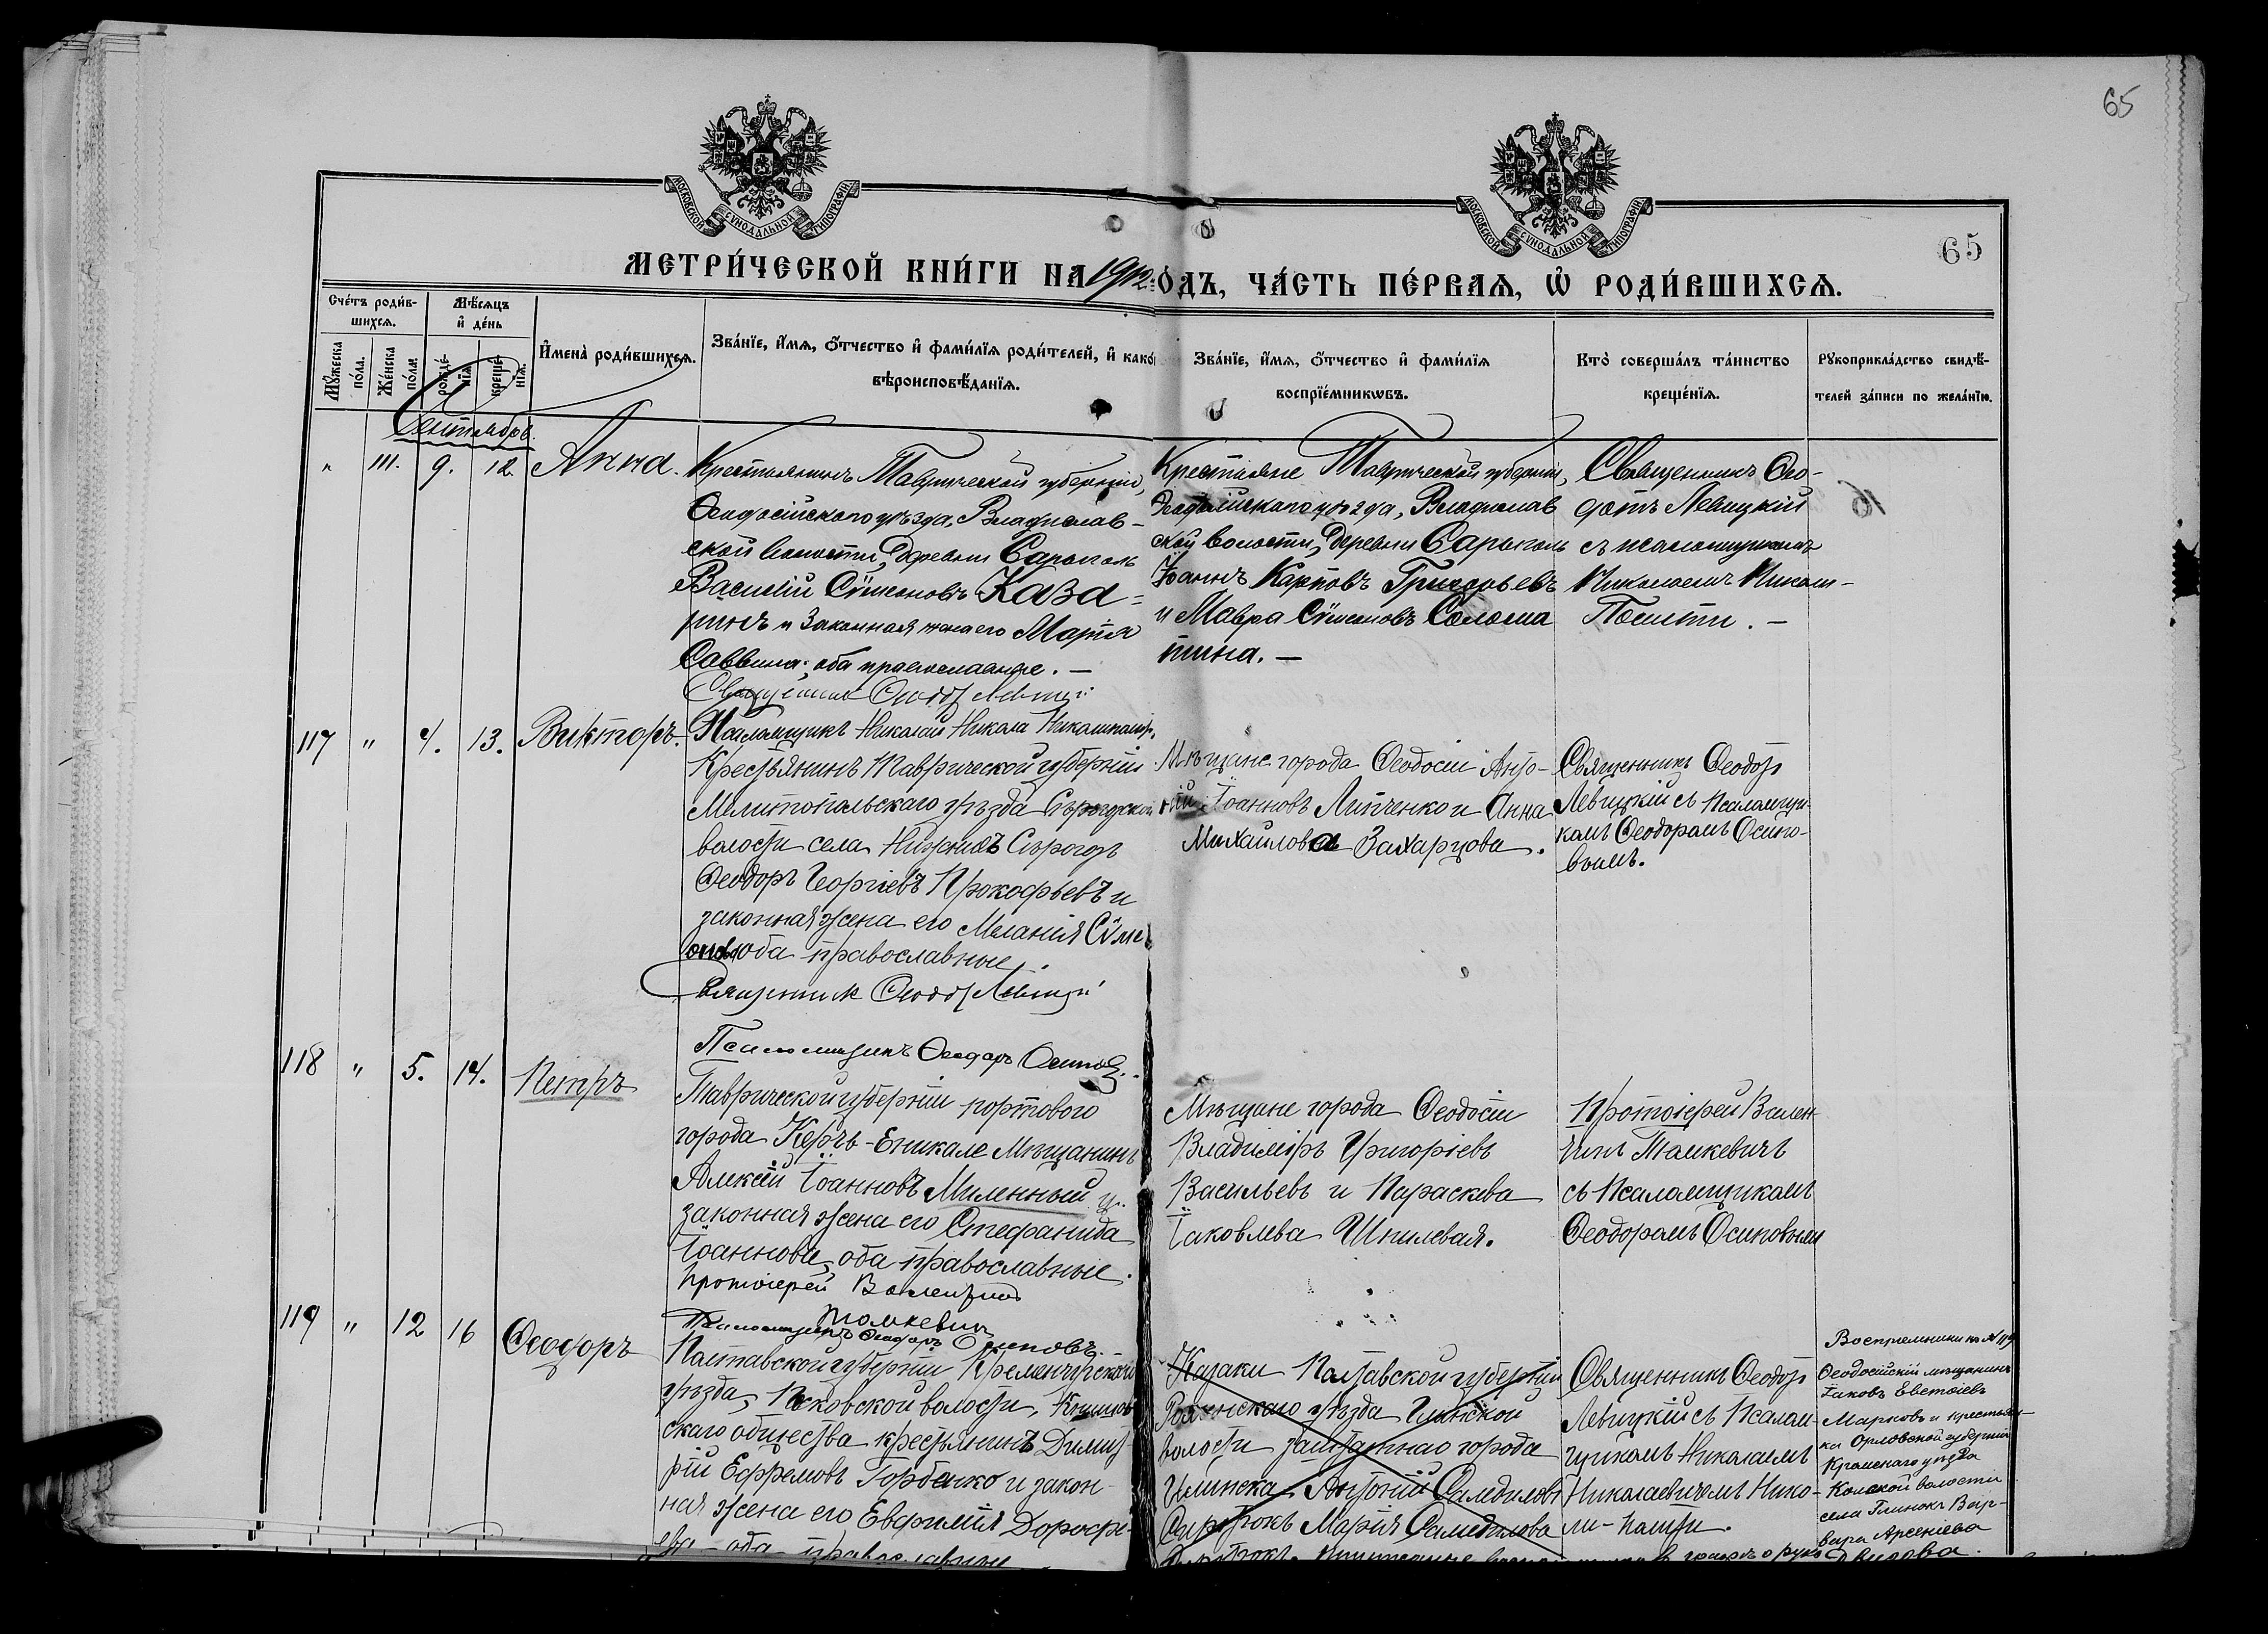 65
МОСКОВСКОЙ СѴНОДАЛЬНОЙ ТИПОГРАФІИ
МОСКОВСКОЙ СѴНОДАЛЬНОЙ ТИПОГРАФІИ
65
МЕТРИ́ЧЕСКОЙ КНИ́ГИ НА 1912 ГОДЪ, ЧА́СТЬ ПЕ́РВАѦ, Ѡ҆ РОДИ́ВШИХСѦ.
Сче́тъ роди́в-
шихсѧ.
Мѣ́сѧцъ
и҆ де́нь
Мꙋ́жеска
по́ла.
Же́нска
по́ла.
рожде́-
нїѧ.
креще́-
нїѧ.
И҆мена̀ роди́вшихсѧ.
Зва́нїе, и҆́мѧ, ѻ҆́тчество и҆ фами́лїѧ роди́телей, и҆ како́
вѣроисповѣ́данїѧ.
Зва́нїе, и҆́мѧ, ѻ҆́тчество и҆ фами́лїѧ
воспрїе́мникѡвъ.
Кто̀ соверша́лъ та́инство
креще́нїѧ.
Рꙋкоприкла́дство свидѣ́-
телей за́писи по жела́нїю.
Сентябрь.
" 111. 9. 12. Анна.
Крестьянинъ Таврической губерніи,
Ѳеодосійскаго уѣзда, Владислав-
ской волости, деревни Сарыголь
Василій Сѵмеоновъ Каза-
ринъ и законная жена его Марія
Саввина; оба православные. —
Священникъ Ѳеодотъ Левицкій
Псаломщикъ Николай Никола
Крестьяне Таврической губерніи,
Ѳеодосійскаго уѣзда, Владислав
ской волости, деревни Сарыголь
Іоаннъ Карповъ Григорьевъ
и Мавра Сѵмеоновъ Солома
тина. —
Священникъ Ѳео-
дотъ Левицкій
съ псаломщикомъ
117 " 4. 13. Викторъ.
Крестьянинъ Таврической губерніи
Мелитопольскаго уѣзда Сѣрогузской
волости села Нижнихъ Сѣрогозъ
Ѳеодоръ Георгіевъ Прокофьевъ и
законная жена его Меланія Сѵме
онова оба православные.
Священникъ Ѳеодотъ Левицкій
Псаломщикъ Ѳеодоръ Осиповъ.
Мѣщане города Ѳеодосіи Анто-
ній Іоанновъ Литченко и Анна
Михайлова Захарцова.
Священникъ Ѳеодотъ
Левицкій съ Псаломщи-
комъ Ѳеодоромъ Осипо-
вымъ.
118 " 5. 14. Петръ
Таврической губерніи портового
города Керчь-Еникале мѣщанинъ
Алексій Іоанновъ Миленный и
законная жена его Стефанида
Іоаннова, оба православные.
Протоіерей Валентинъ
Томкевичъ
Псаломщикъ Ѳеодоръ Осиповъ.
Мѣщане города Ѳеодосіи
Владиміръ Григоріевъ
Васильевъ и Параскева
Іаковлева Шпилевая.
Протоіерей Вален
тинъ Томкевичъ
съ Псаломщикомъ
Ѳеодоромъ Осиповымъ
119 " 12 16 Ѳеодоръ
Полтавской губерніи Кременчугскаго
уѣзда, волости,
скаго общества крестьянинъ Димит
рій Ефремовъ Горбенко и закон-
ная жена его Евфимія Дорофе-
ева – оба – православные
Казаки Полтавской губерніи
Роменскаго уѣзда Глинской
волости заштатнаго города
Глинска Антоній Самойловъ
Сиротокъ Марія Самойлова
Священникъ Ѳеодотъ
Левицкій съ Псалом-
щикомъ Николаемъ
Николаевичемъ Нико-
ли-Пашти.
Воспріемники къ № 119
Ѳеодосійскій мѣщанинъ
Іаковъ Евстіевъ
Марковъ и крестьян-
ка Орловской губерніи
Кромскаго уѣзда
волости
села Глинокъ Вар-
вара Арсеніева